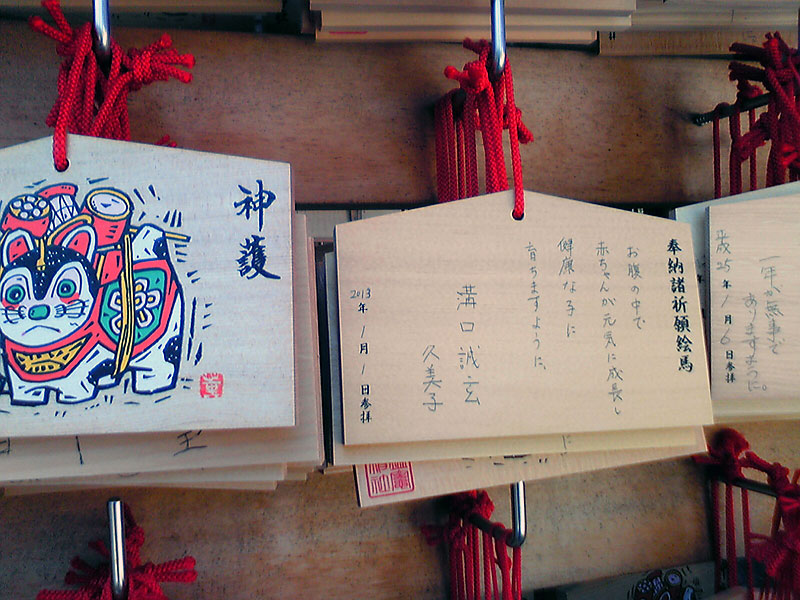 神護
奉納諸祈願絵馬
お腹の中で
赤ちゃんが元気に成長し
健康な子に
育ちますように。
溝口誠玄
久美子
2013年1月1日参拝
一年が無事で
ありますように。
平成25年1月6日参拝